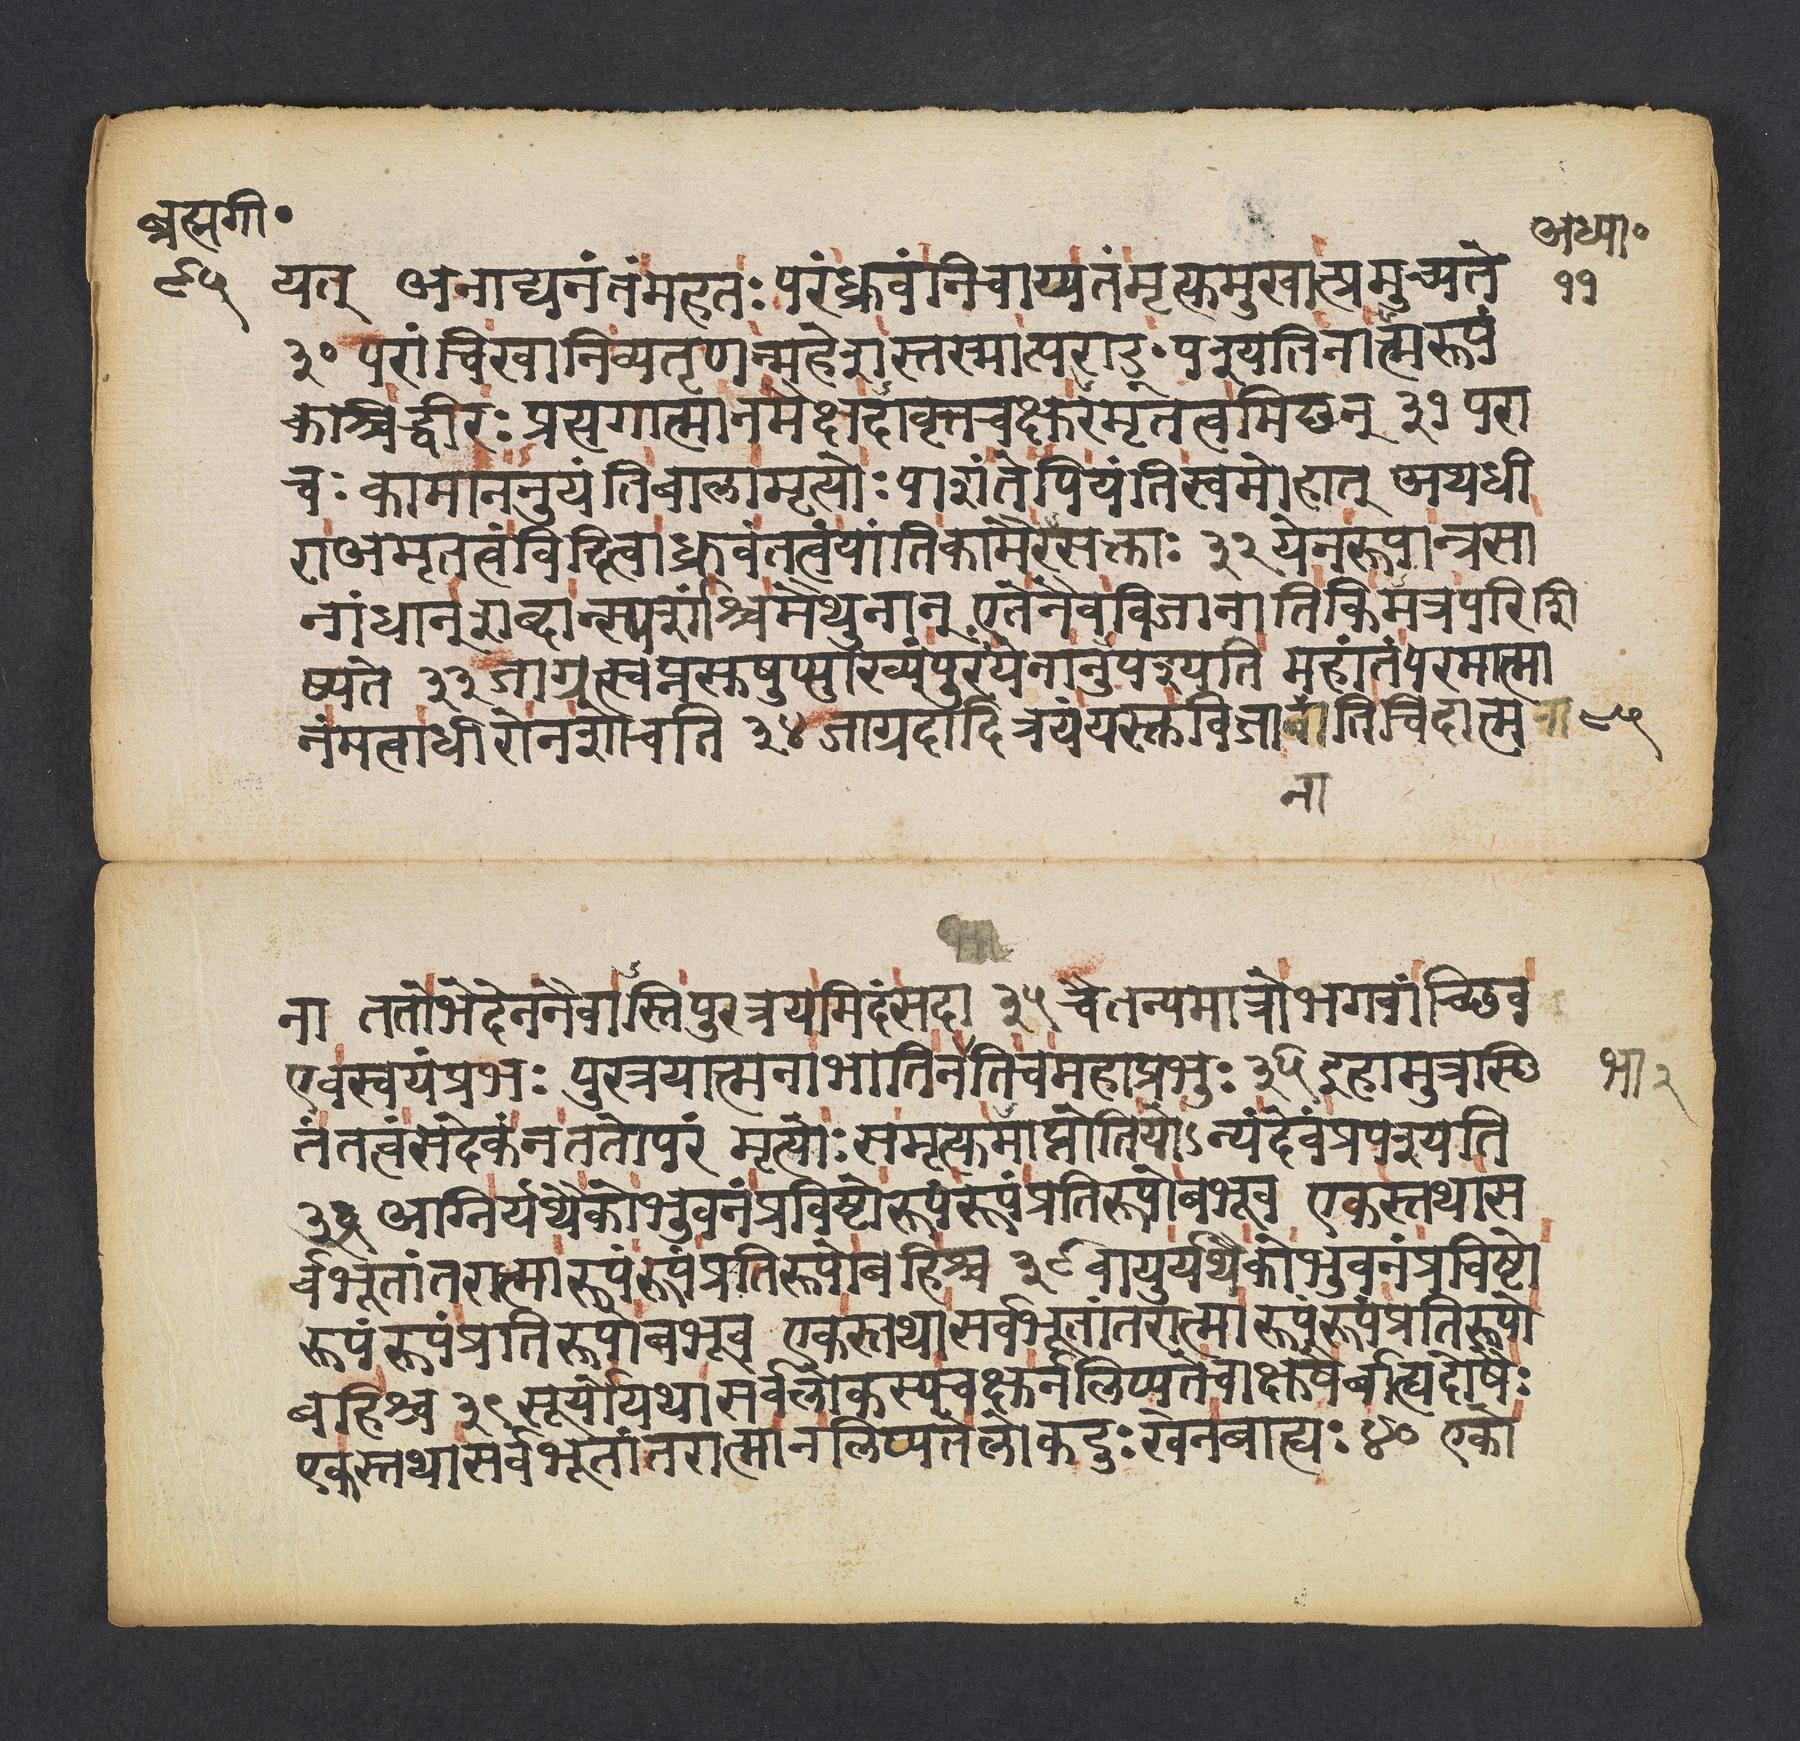 ब्रह्मगी॰
अध्या॰
८५
११
यत् अनाद्यनंतंमहतः परंध्रुवंनिचाय्यतंमृत्युमुखात्प्रमुच्यते
३० परांचिखानिव्यतृणन्महेशस्तस्मात्पराङ्पश्यतिनात्मरूपं
कश्चिद्धीरः प्रत्यगात्मानमैक्षदावृत्तचक्षुरमृतत्वमिछन् ३१ परा
चः कामाननुयंतिबालामृत्योः पाशंतेपियंतिस्वमोहात् अथधी
राअमृतत्वंविदित्वाध्रुवंतत्वंयांतिकामैरसक्ताः ३२ येनरूपान्रसा
नांधान् शब्दान्स्पर्शाश्चमैथुनान् एतेनैवविजानातिकिमत्रपरिशि
ष्यते ३३ जाग्रत्स्वप्नसुषुप्त्याख्यंपुरंयेनानुपश्यति महांतंपरमात्मा
नंमत्वाधीरोनशोचति ३४ जाग्रदादित्रयंयस्तुविजानातिचिदात्मना ८५
ना
ना ततोभेदेननैवास्तिपुरत्रयमिदंसदा ३५ चैतन्यमात्रोभगवांच्छिव
एवस्वयंप्रभः पुरत्रयात्मनाभातिनभातिचमहाप्रभुः ३६ इहामुत्रस्थि
भा २
तंतत्वंसदेकंनततोपरं मृत्योः समृत्युमाप्नोतियोऽन्यंदेवंप्रपश्यति
३७ अग्निर्यथैकोभुवनंप्रविष्टोरूपंरूपंप्रतिरूपोबभूव एकस्तथास
र्वभूतांतरात्मारूपंरूपंप्रतिरूपोबहिश्च ३८ वायुर्यथैकोभुवनंप्रविष्टो
रूपंरूपंप्रतिरूपोबभूव एकस्तथासर्वभूतांतरात्मारूपंरूपंप्रतिरूपो
बहिश्च ३९ सूर्योयथासर्वलोकस्यचक्षुर्नलिप्यतेचाक्षुषैर्बाह्यदोषैः
एकस्तथासर्वभूतांतरात्मानलिप्यतेलोकदुःखेनबाह्यः ४० एको